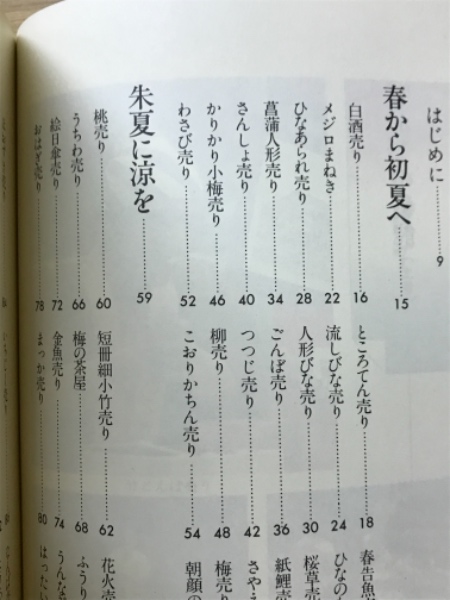 はじめに 9
春から初夏へ 15
白酒売り 16
ところてん売り 18
春告魚
メジロまねき 22
流しびな売り 24
ひなの
ひなあられ売り 28
人形びな売り 30
桜草売
菖蒲人形売り 34
ごんぱ売り 36
紙鯉売
さんしょ売り 40
つつじ売り 42
さやえ
かりかり小梅売り 46
柳売り 48
梅売り
わさび売り 52
こおりかちん売り 54
朝顔の
朱夏に涼を 59
桃売り 60
短冊細小竹売り 62
花火売
うちわ売り 66
梅の茶屋 68
ふうり
絵日傘売り 72
金魚売り 74
うんな
おはぎ売り 78
まっか売り 80
はったい